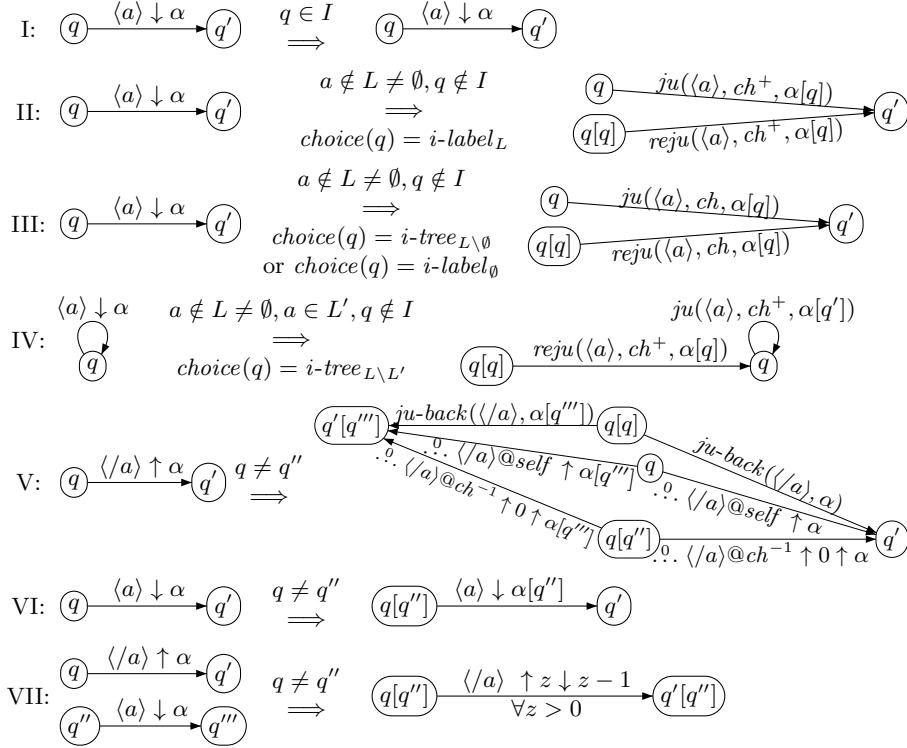 I: q ⟨a⟩ ↓ α q′ q ∈ I ⟹ q ⟨a⟩ ↓ α q′
II: q ⟨a⟩ ↓ α q′ a ∉ L ≠ ∅, q ∉ I ⟹ choice(q) = i-label_L q ju(⟨a⟩, ch⁺, α[q]) q[q] reju(⟨a⟩, ch⁺, α[q]) q′
III: q ⟨a⟩ ↓ α q′ a ∉ L ≠ ∅, q ∉ I ⟹ choice(q) = i-tree_{L\∅} or choice(q) = i-label_∅ q ju(⟨a⟩, ch, α[q]) q[q] reju(⟨a⟩, ch, α[q]) q′
IV: ⟨a⟩ ↓ α q a ∉ L ≠ ∅, a ∈ L′, q ∉ I ⟹ choice(q) = i-tree_{L\L′} q[q] reju(⟨a⟩, ch⁺, α[q]) q ju(⟨a⟩, ch⁺, α[q′])
V: q ⟨/a⟩ ↑ α q′ q ≠ q″ ⟹ q′[q‴] ju-back(⟨/a⟩, α[q‴]) q[q] ju-back(⟨/a⟩, α) .⁰. ⟨/a⟩@self ↑ α[q‴] q .⁰. ⟨/a⟩@self ↑ α .⁰. ⟨/a⟩@ch⁻¹ ↑ 0 ↑ α[q‴] q[q″] .⁰. ⟨/a⟩@ch⁻¹ ↑ 0 ↑ α q′
VI: q ⟨a⟩ ↓ α q′ q ≠ q″ ⟹ q[q″] ⟨a⟩ ↓ α[q″] q′
VII: q ⟨/a⟩ ↑ α q′ q″ ⟨a⟩ ↓ α q‴ q ≠ q″ ⟹ q[q″] ⟨/a⟩ ↑ z ↓ z − 1 ∀z > 0 q′[q″]